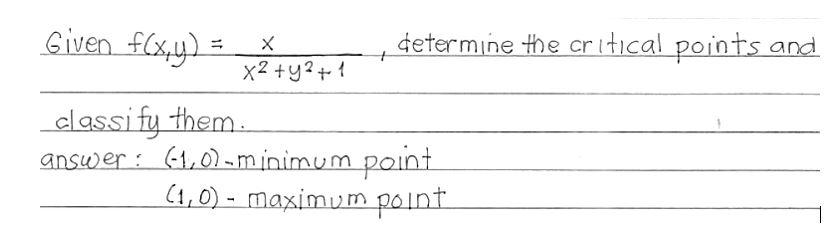 Given f(x,y) = x / x² + y² + 1 , determine the critical points and
classify them.
answer : (-1,0) - minimum point
(1,0) - maximum point